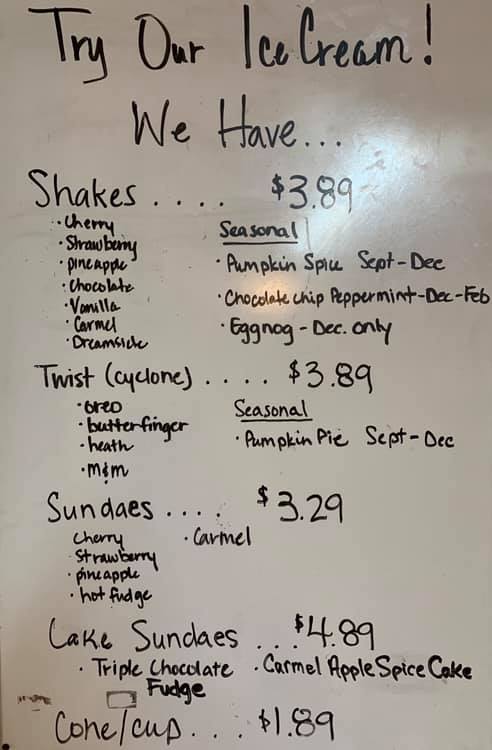 Try Our Ice Cream!
We Have...
Shakes .... $3.89
· Cherry
· Strawberry
· pineapple
· Chocolate
· Vanilla
· Carmel
· Dreamsicle
Seasonal
· Pumpkin Spice Sept-Dec
· Chocolate chip Peppermint-Dec-Feb
· Eggnog - Dec. only
Twist (cyclone) .... $3.89
· oreo
· butterfinger
· heath
· m&m
Seasonal
· Pumpkin Pie Sept-Dec
Sundaes .... $3.29
Cherry
· Strawberry
· pineapple
· hot fudge
· Carmel
Cake Sundaes ... $4.89
· Triple Chocolate
Fudge
· Carmel Apple Spice Cake
Cone/cup.... $1.89